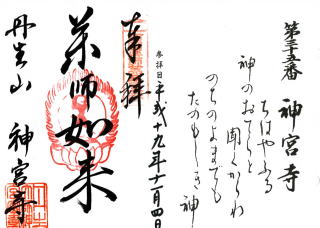 第三十五番 神宮寺
ちはやふる
神のおてらと
聞くからハ
のちのよまでも
たのもしき神
参拝日 平成十九年十一月四日
奉拝
薬師如来
丹生山 神宮寺